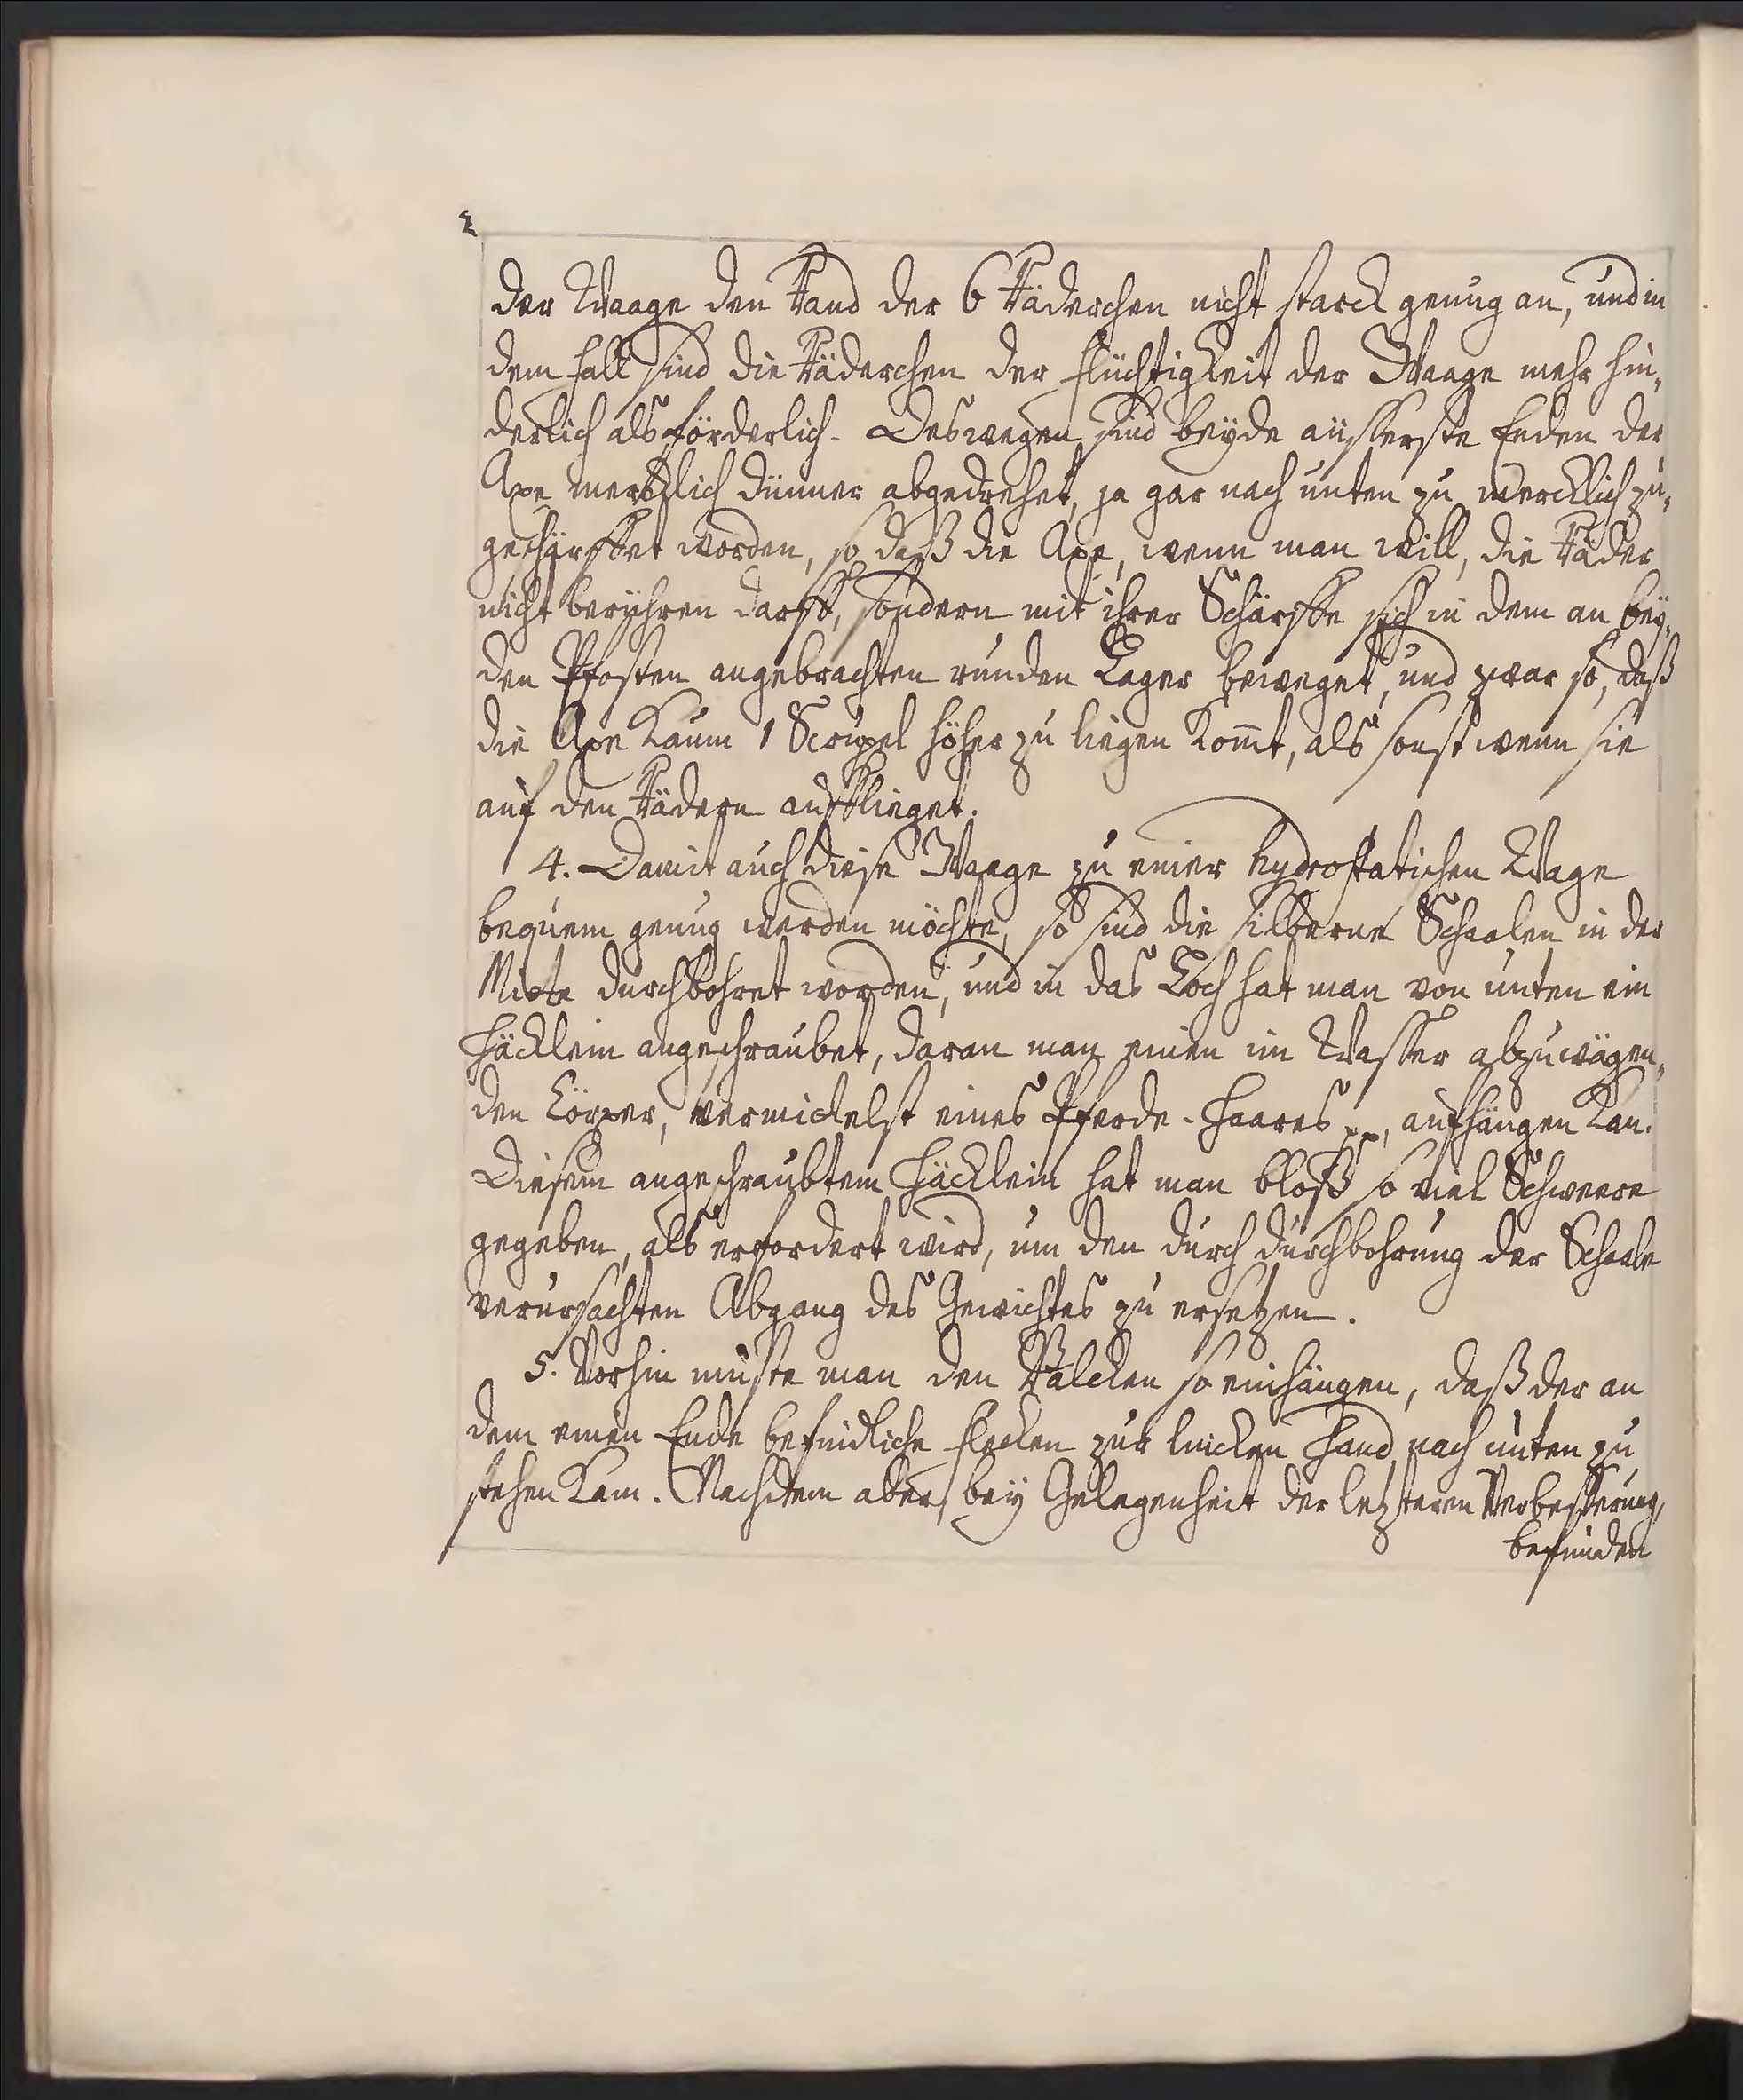 der Waage den Rand der 6 Räderchen nicht starck genug an, und in
dem fall sind die Räderchen der flüchtigkeit der Waage mehr hin„
derlich als förderlich. Deswegen sind beyde äüsserste Enden der
Axe mercklich dünner abgedrehet, ja gar nach unten zu mercklich zu„
geschärffet worden, so daß die Axe, wenn man will, die Räder
nicht berühren darff, sondern mit ihrer Schärffe sich in dem an bey„
den Pfosten angebrachten runden Lager beweget, und zwar so, daß
die Axe kaum 1 Scrupel höher zu liegen kom̅t, als sonst wenn sie
auf den Rädern auffliegt.
4. Damit auch diese Waage zu einer hydrostatischen Wage
bequem genug werden möchte, so sind die silberne Schaalen in der
Mitte durchbohret worden, und in das Loch hat man von unten ein
Häcklein angeschraubet, daran man einen im Wasser abzuwägen„
den Cörper, vermittelst eines Pferde-Haares pp, aufhängen kan.
Diesem angeschraubtem Häcklein hat man bloß so viel Schweere
gegeben, als erfordert wird, um den durch durchbohrung der Schaale
verursachten Abgang des Gewichtes zu ersetzen.
5. Vorhin muste man den Balcken so einhängen, daß der an
dem einen Ende befindliche flecken zur lincken Hand nach unten zu
stehen kam. Nachdem aber, bey Gelegenheit der letzteren Verbesserung,
befunden